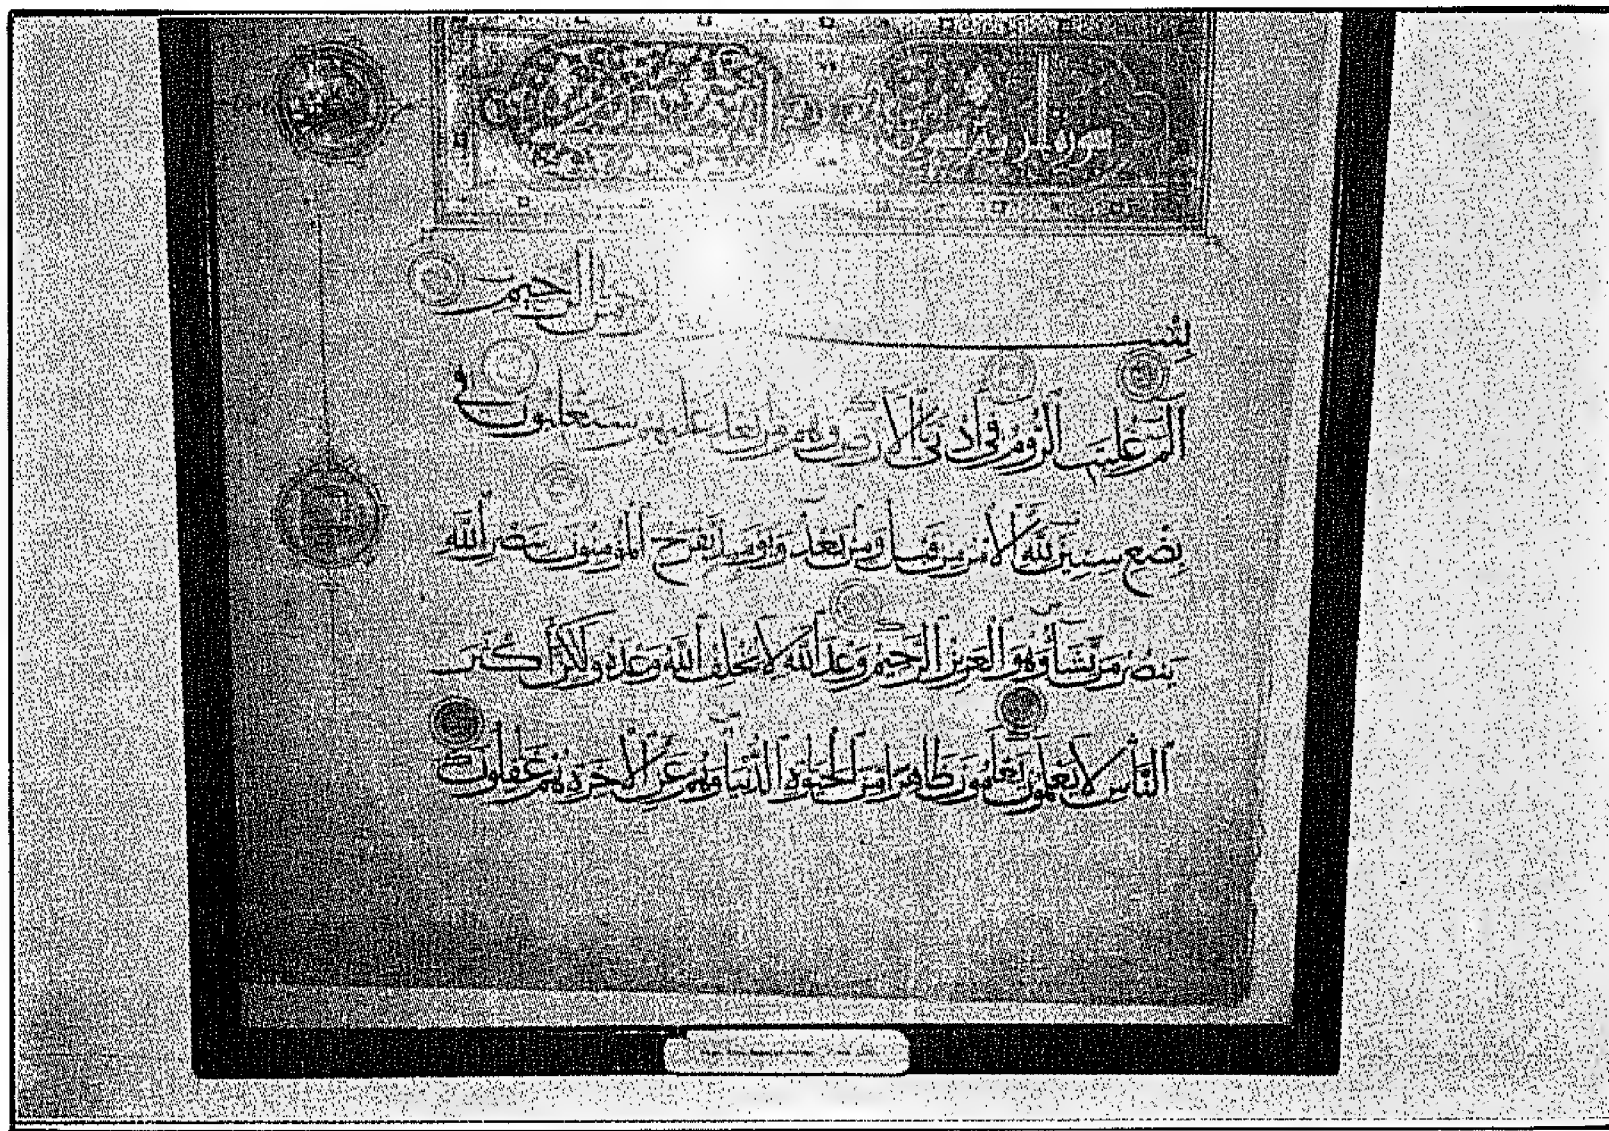 سورة الروم ستون
بسم الرحيم
الم غلبت الروم في أدنى الارض وهم من بعد غلبهم سيغلبون في
بضع سنين لله الامر من قبل ومن بعد ويومئذ يفرح المؤمنون بنصر الله
ينصر من يشآء وهو العزيز الرحيم وعد الله لا يخلف الله وعده ولكن أكثر
الناس لا يعلمون يعلمون ظاهرا من الحيوة الدنيا وهم عن الآخرة هم غفلون